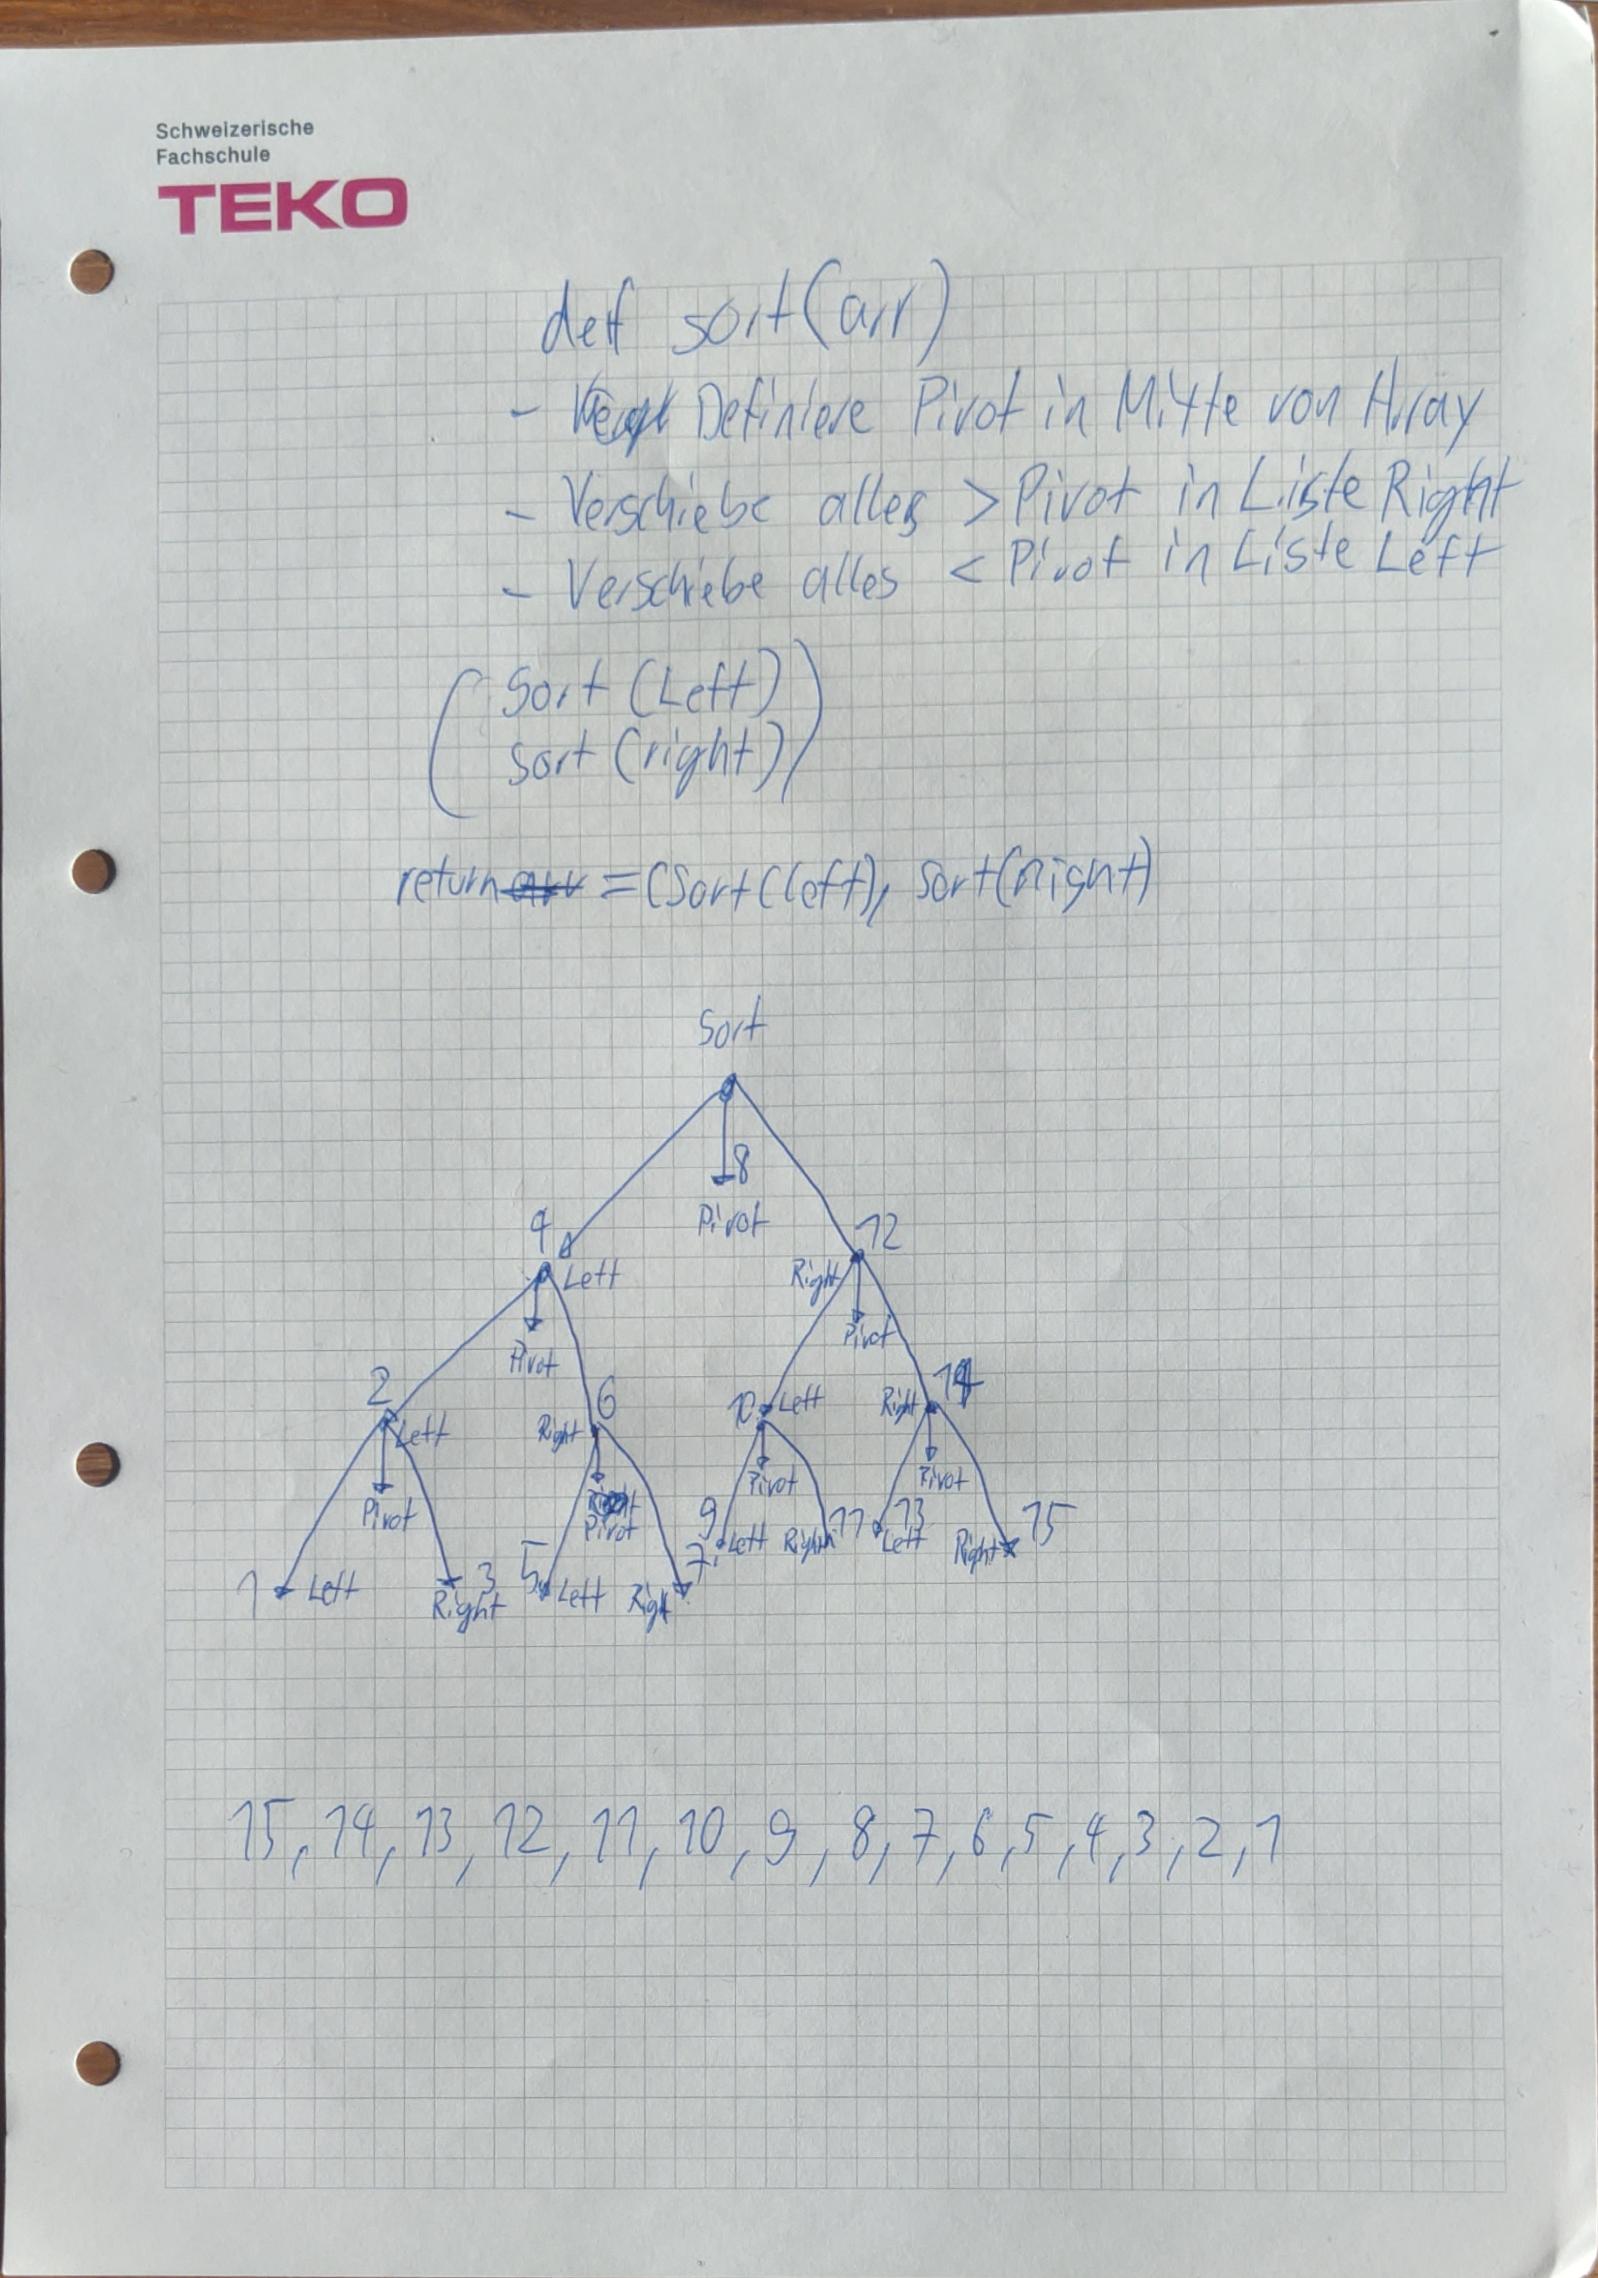 Schweizerische
Fachschule
TEKO
def sort(arr)
- Definiere Pivot in Mitte von Array
- Verschiebe alles > Pivot in Liste Right
- Verschiebe alles < Pivot in Liste Left
(Sort (Left)
sort (right))
return = (Sort(left), Sort(Right)
Sort
8
Pivot
4
Left
Pivot
12
Right
Pivot
2
Left
Pivot
6
Right
Pivot
10
Left
Pivot
14
Right
Pivot
1 Left
3
Right
5 Left
7
Right
9
Left
11
Right
13
Left
15
Right
15, 14, 13, 12, 11, 10, 9, 8, 7, 6, 5, 4, 3, 2, 1